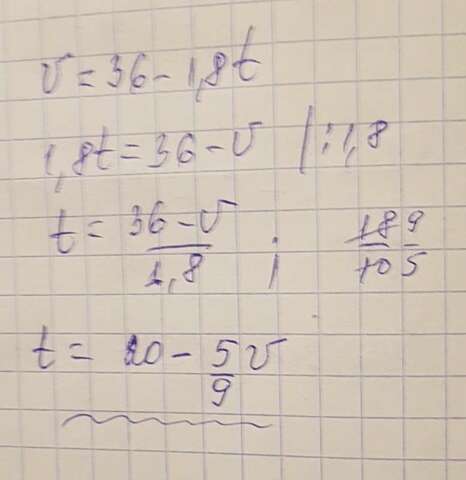 v = 36 - 1,8t
1,8t = 36 - v |:1,8
t = \frac{36 - v}{1,8} ; \frac{18}{10} \frac{9}{5}
t = 20 - \frac{5}{9} v